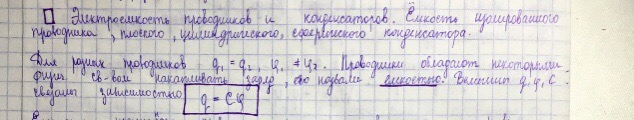 Электроемкость проводников и конденсаторов. Ёмкость изолированного
проводника, плоского, цилиндрического, сферического конденсатора.
Для разных проводников q₁ = q₂, φ₁ ≠ φ₂. Проводники обладают некоторыми
физич. св-вом накапливать заряд, его назвали емкостью. Величины q, φ, C
связаны зависимостью q = Cφ